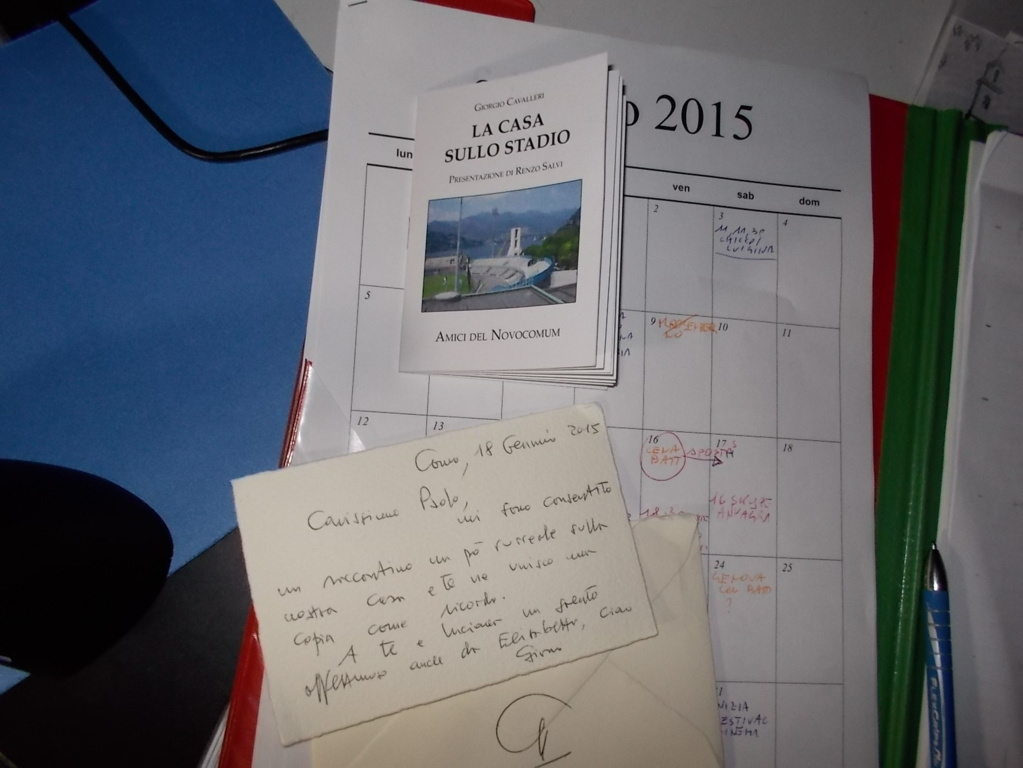 2015
lun
ven
sab
dom
GIORGIO CAVALLERI
LA CASA
SULLO STADIO
PRESENTAZIONE DI RENZO SALVI
AMICI DEL NOVOCOMUM
2
3
4
5
9
10
11
12
13
16
CENA
17
18
24
GENOVA
?
25
Como, 18 Gennaio 2015
Carissimo Paolo,
mi sono consentito
un raccontino un pò surreale sulla
nostra casa e te ne unisco una
copia come ricordo.
A te e Luciana un saluto
affettuoso anche da Elisabetta, ciao